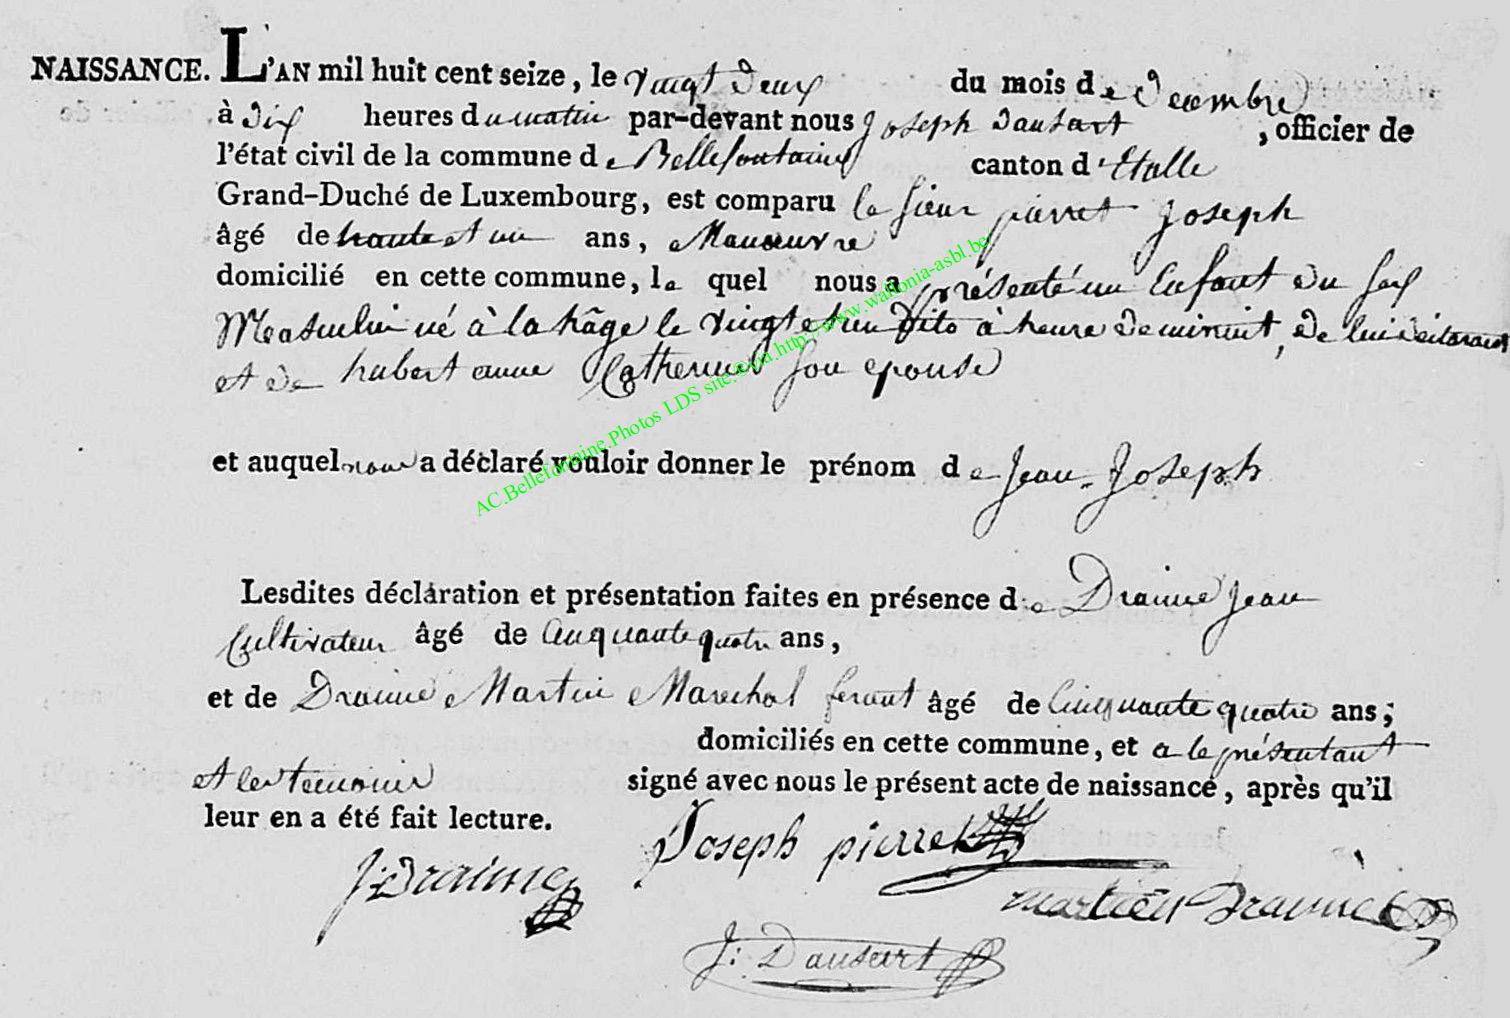 NAISSANCE. L'AN mil huit cent seize, le vingt deux du mois de Decembre
à dix heures du matin par-devant nous Joseph Dansart, officier de
l'état civil de la commune de Bellefontaine canton d'Etalle
Grand-Duché de Luxembourg, est comparu le sieur pierret Joseph
âgé de trente et un ans, Manœuvre
domicilié en cette commune, le quel nous a présenté un Enfant du sex
Masculin né à la hâge le vingt et un dito à heure de minuit, de lui déclarant
et de hubert anne Catherine son epouse
et auquel nous a déclaré vouloir donner le prénom de Jean-Joseph
Lesdites déclaration et présentation faites en présence de Draime Jean
Cultivateur âgé de Cinquante quatre ans,
et de Draime Martin Marechal ferant âgé de Cinquante quatre ans;
domiciliés en cette commune, et a le présentant
et les temoins signé avec nous le présent acte de naissance, après qu'il
leur en a été fait lecture.
Joseph pierret
J: Draime
martin Draime
J: Dansart
AC.Bellefontaine.Photos LDS site:©via.http://www.wallonia-asbl.be/